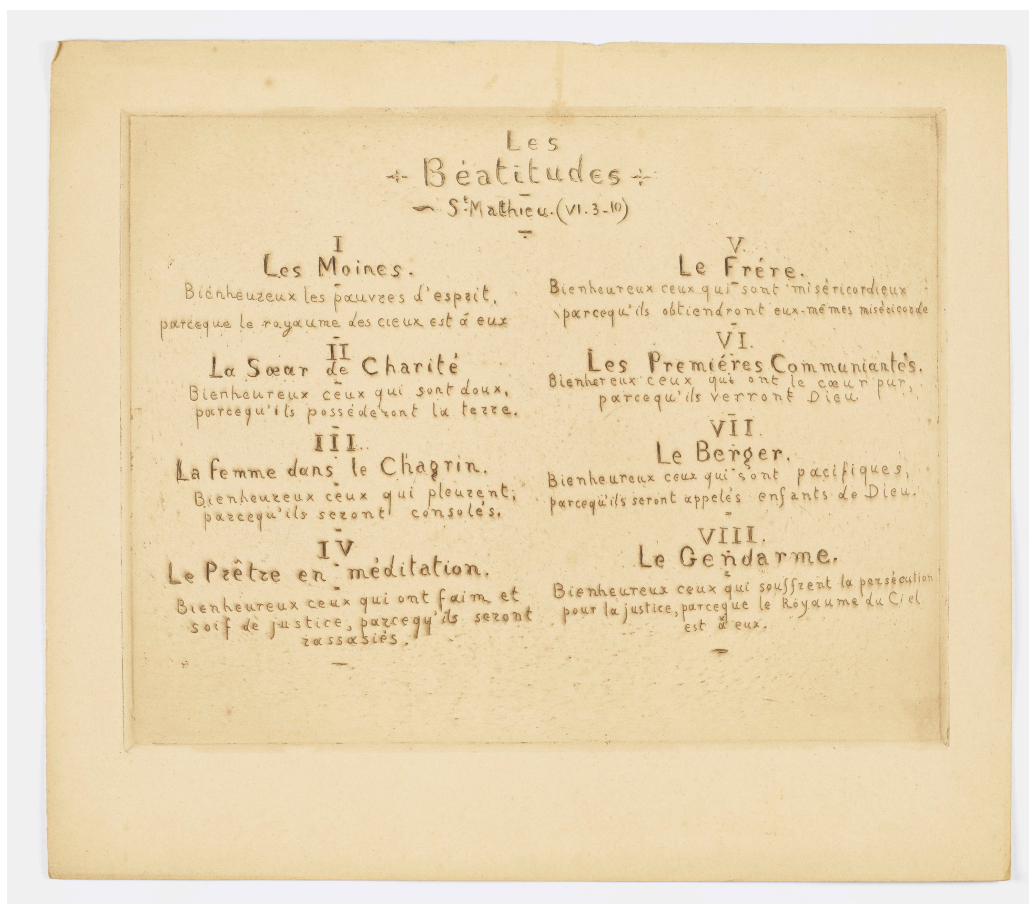 Les
Béatitudes
St Mathieu. (VI. 3-10)
I
Les Moines.
Bienheureux les pauvres d'esprit,
parceque le royaume des cieux est á eux
II
La Sœur de Charité
Bienheureux ceux qui sont doux,
parcequ'ils posséderont la terre.
III.
La femme dans le Chagrin.
Bienheureux ceux qui pleurent;
parcequ'ils seront consolés.
IV
Le Prêtre en méditation.
Bienheureux ceux qui ont faim et
soif de justice, parcequ'ils seront
rassasiés.
V.
Le Frére.
Bienheureux ceux qui sont miséricordieux
parcequ'ils obtiendront eux-mêmes miséricorde
VI.
Les Premiéres Communiantés.
Bienhereux ceux qui ont le cœur pur,
parcequ'ils verront Dieu
VII.
Le Berger.
Bienheureux ceux qui sont pacifiques,
parcequ'ils seront appelés enfants de Dieu.
VIII.
Le Gendarme.
Bienheureux ceux qui souffrent la persécution
pour la justice, parceque le Royaume du Ciel
est á eux.